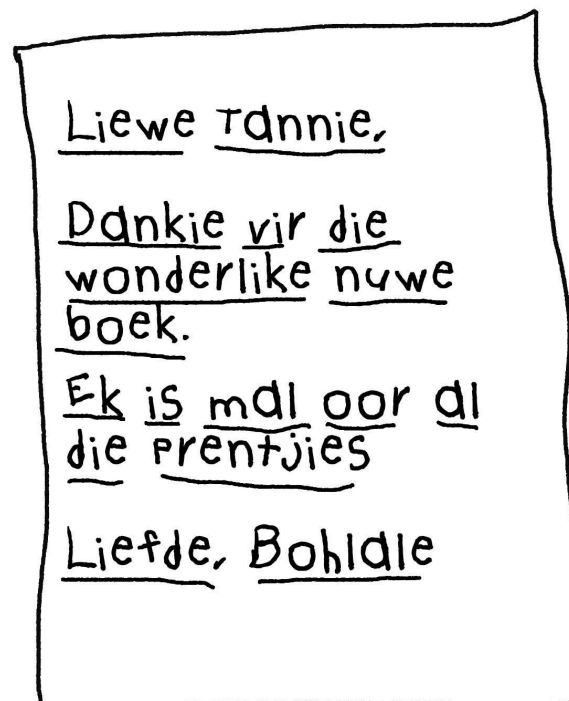 Liewe Tannie,
Dankie vir die
wonderlike nuwe
boek.
Ek is mal oor al
die Prentjies
Liefde, Bohlale